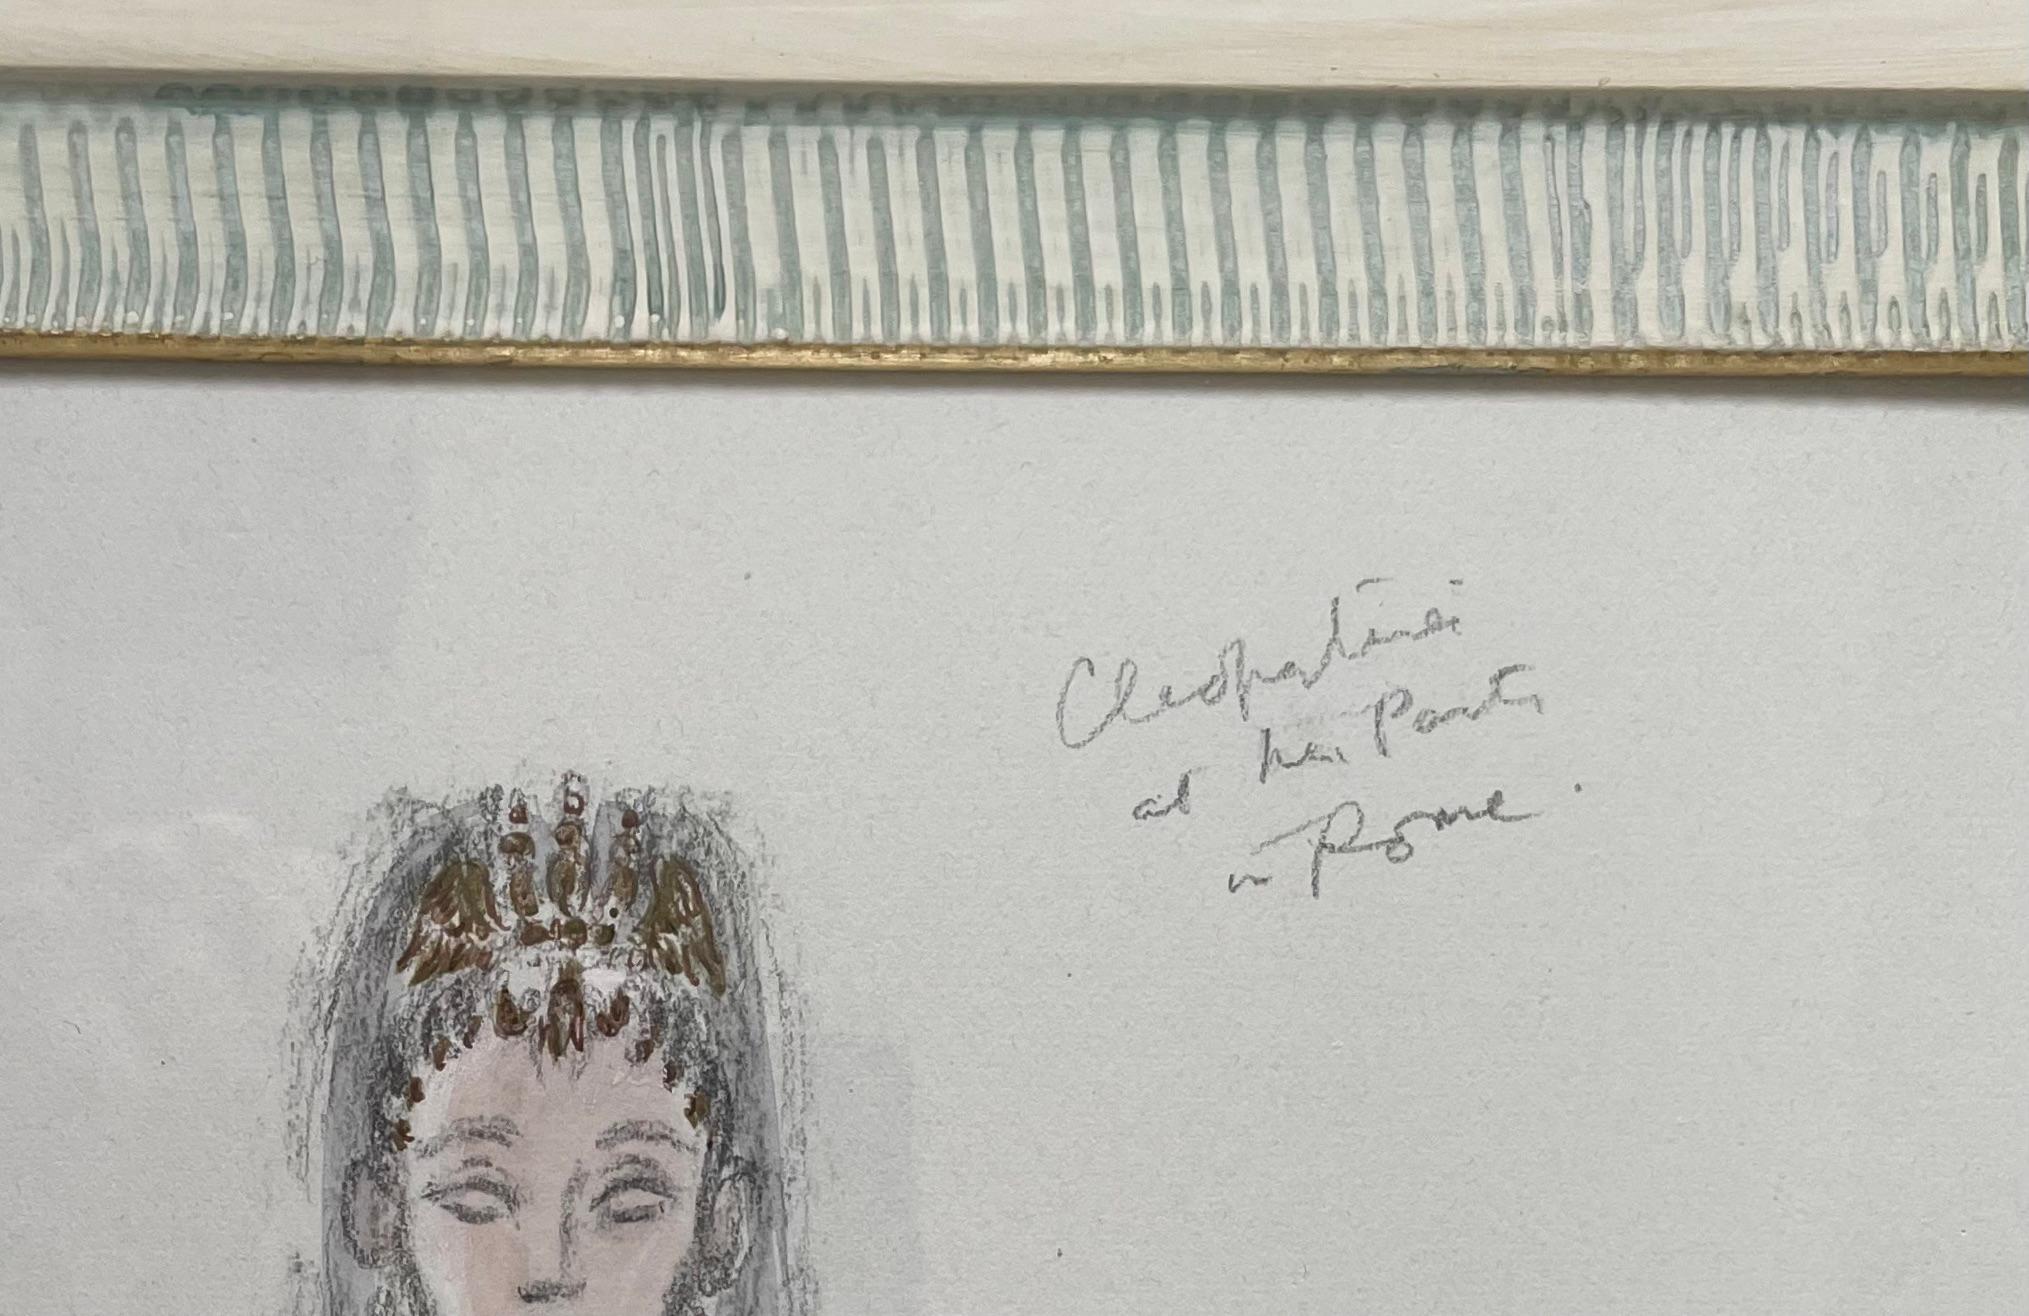 Cleopatra
at her Party
in Rome.